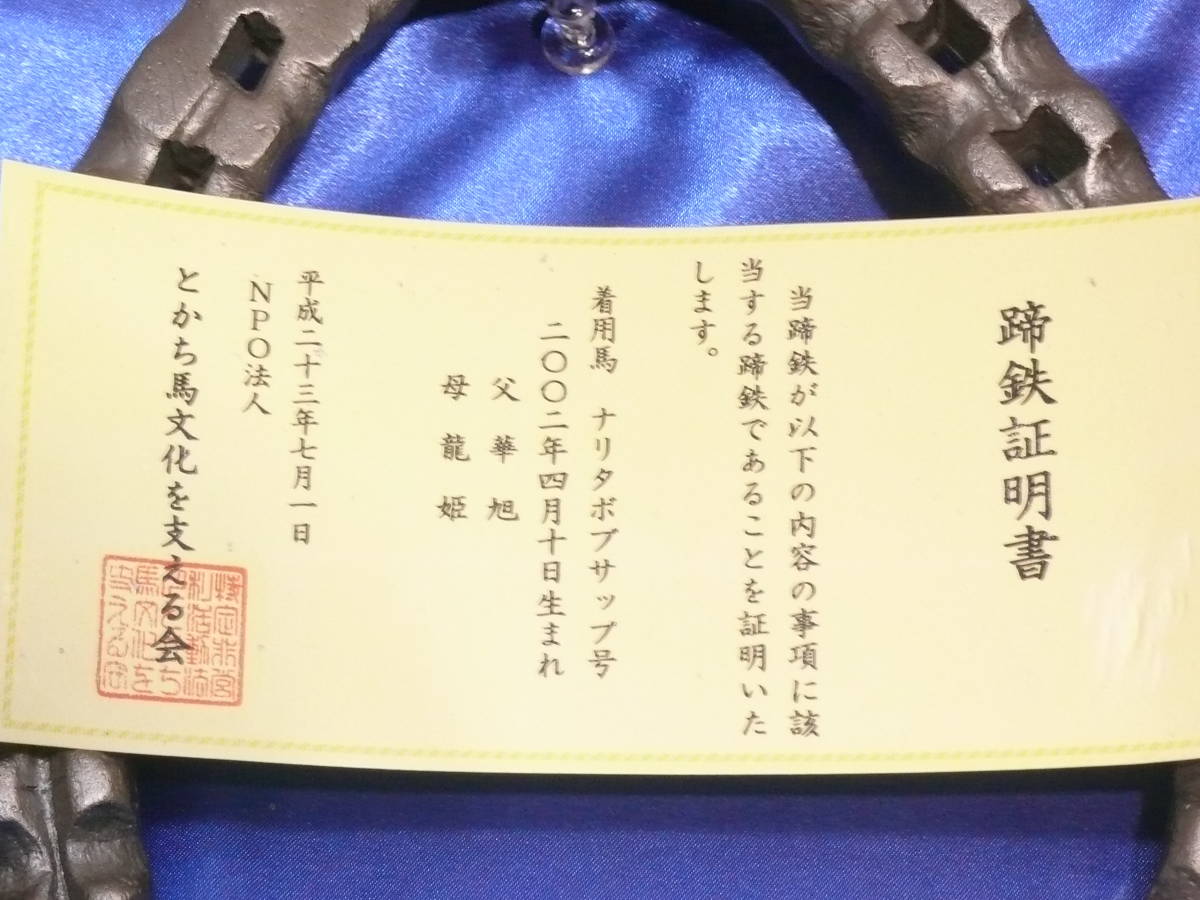 蹄鉄証明書
当蹄鉄が以下の内容の事項に該
当する蹄鉄であることを証明いた
します。
着用馬 ナリタボブサップ号
二〇〇二年四月十日生まれ
父 華 旭
母 龍 姫
平成二十三年七月一日
NPO法人
とかち馬文化を支える会